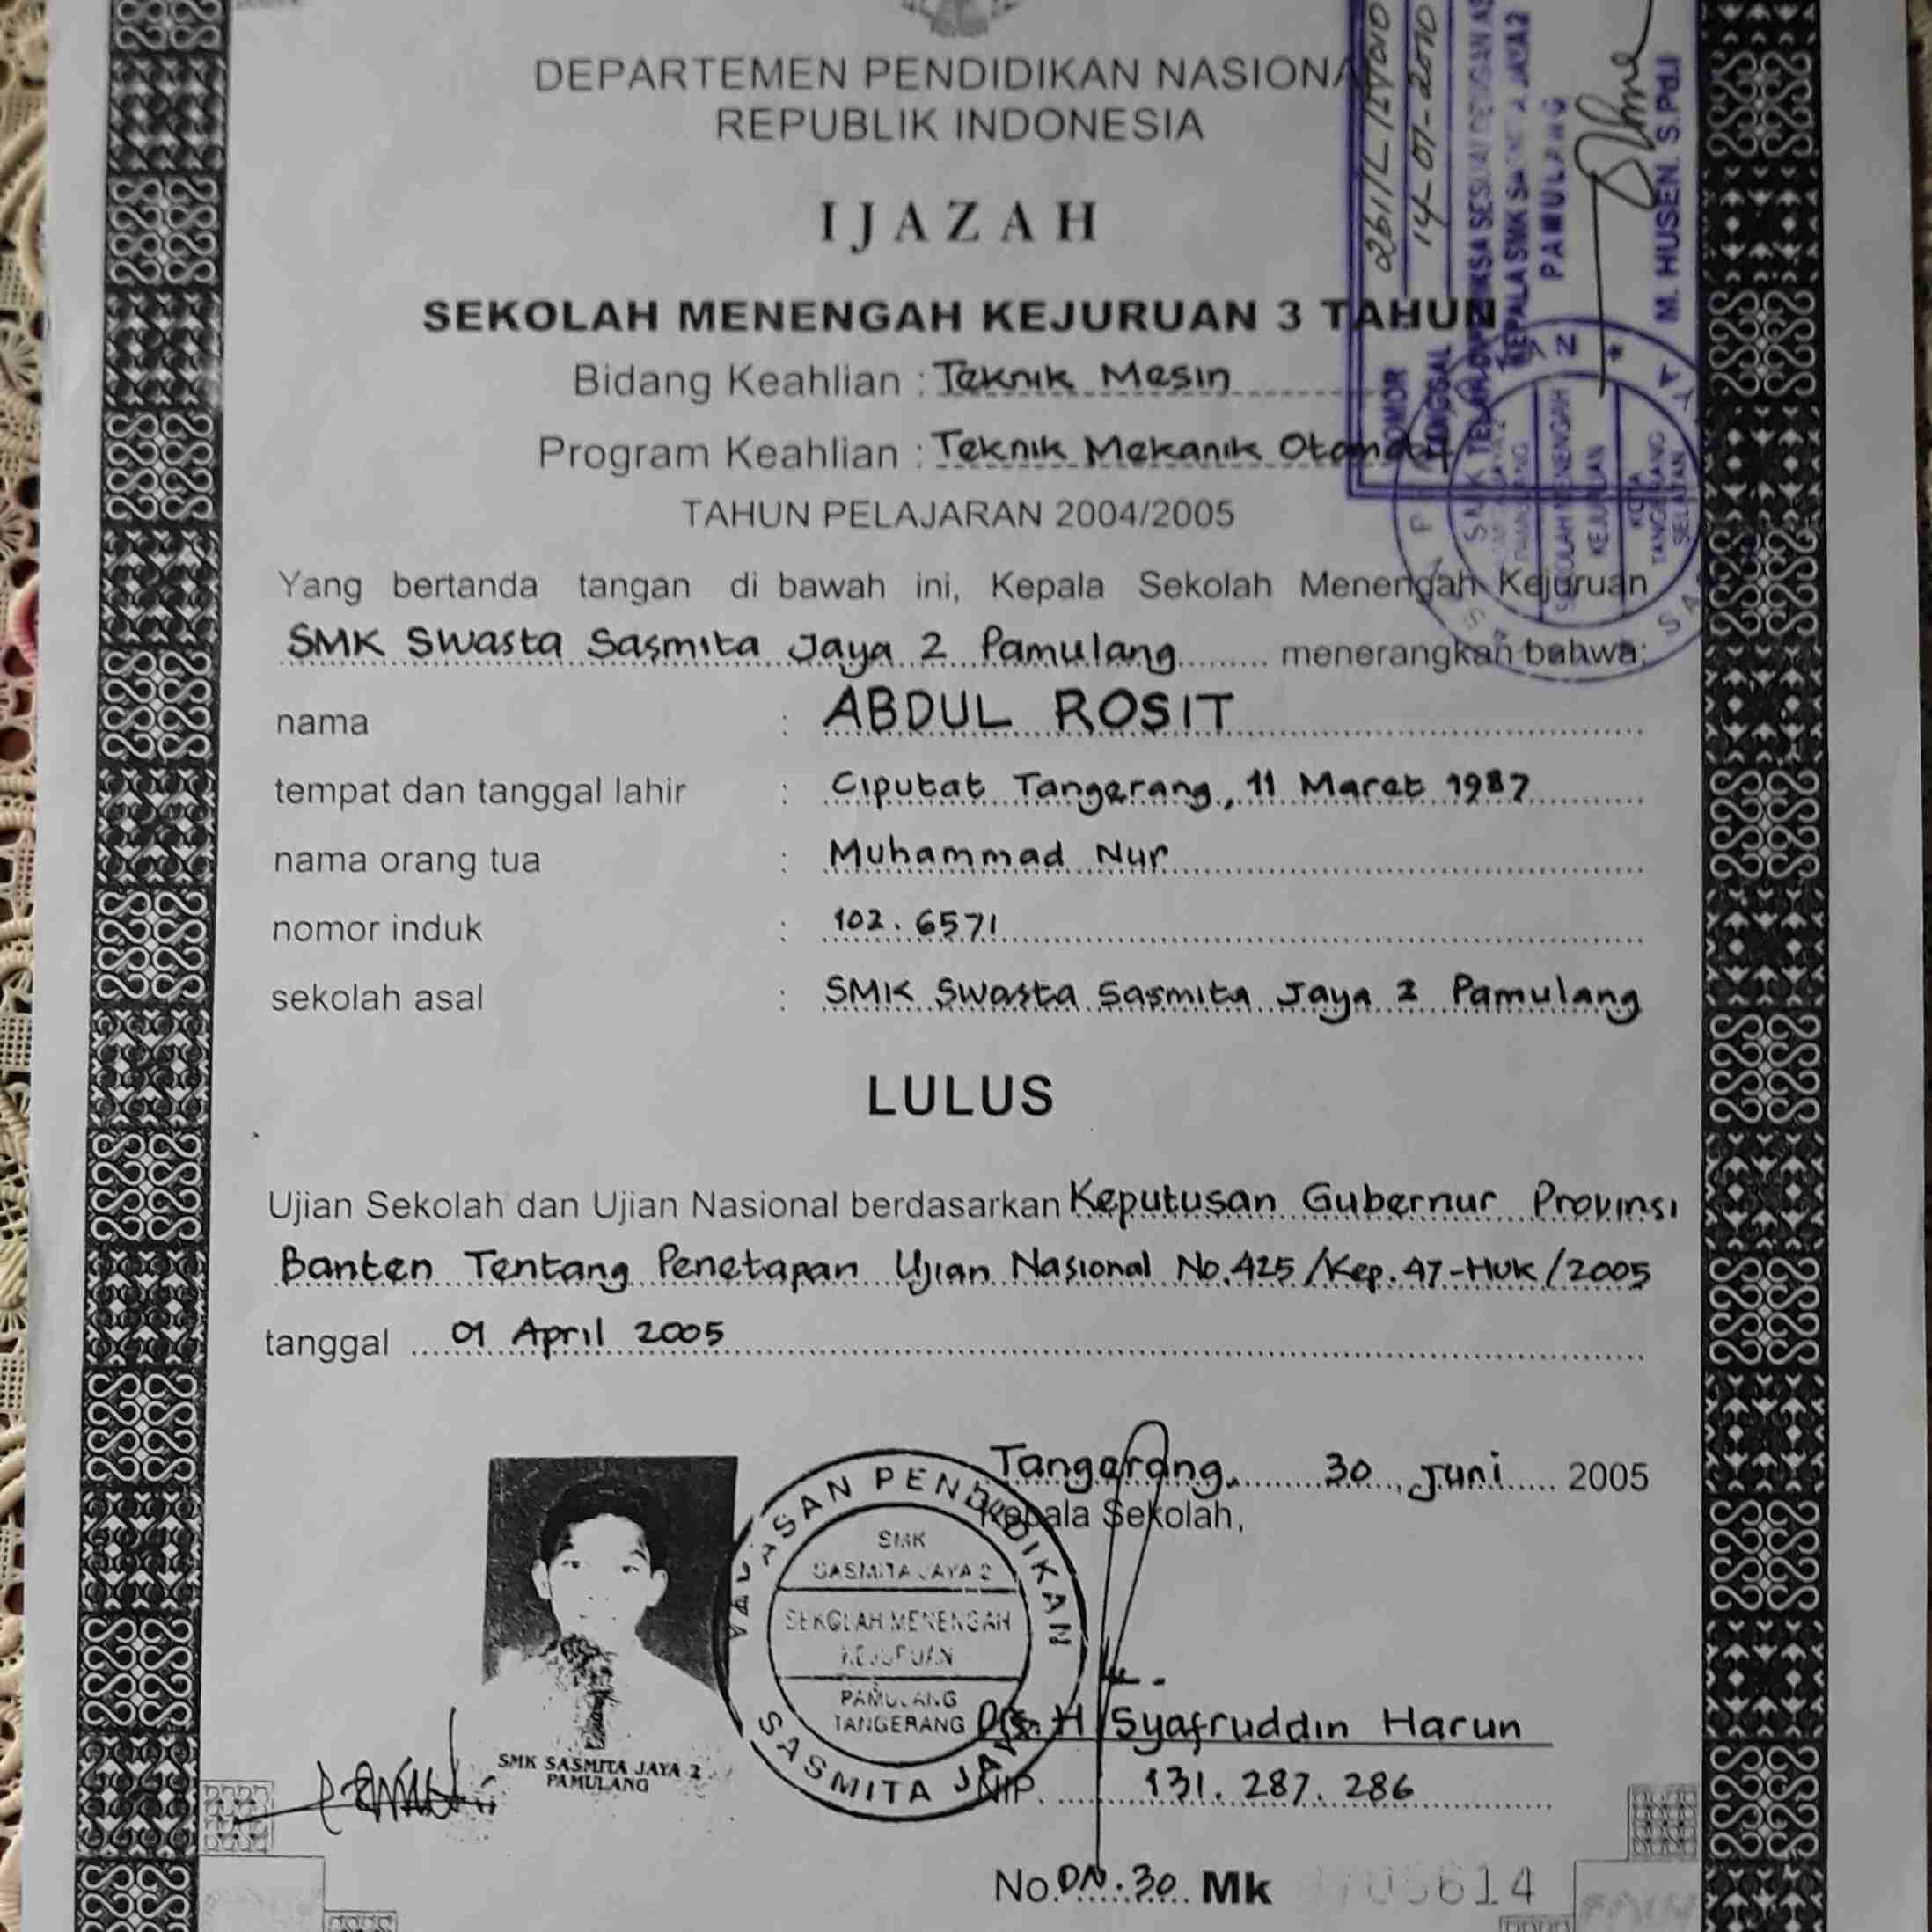 DEPARTEMEN PENDIDIKAN NASIONA
REPUBLIK INDONESIA
IJAZAH
SEKOLAH MENENGAH KEJURUAN 3 TAHUN
Bidang Keahlian : Teknik Mesin
Program Keahlian : Teknik Mekanik
TAHUN PELAJARAN 2004/2005
Yang bertanda tangan di bawah ini, Kepala Sekolah Menengah Kejuruan
SMK Swasta Sasmita Jaya 2 Pamulang menerangkan bahwa:
nama : ABDUL ROSIT
tempat dan tanggal lahir : Ciputat Tangerang, 11 Maret 1987
nama orang tua : Muhammad Nur
nomor induk : 102.6571
sekolah asal : SMK Swasta Sasmita Jaya 2 Pamulang
LULUS
Ujian Sekolah dan Ujian Nasional berdasarkan Keputusan Gubernur Provinsi
Banten Tentang Penetapan Ujian Nasional No.425/Kep.47-Huk/2005
tanggal 01 April 2005
Tangerang, 30 Juni 2005
Kepala Sekolah,
Drs. H Syafruddin Harun
NIP. 131. 287. 286
No. DN.30 Mk 5614
SMK SASMITA JAYA 2
PAMULANG
YAYASAN PENDIDIKAN
SASMITA JAYA
SMK
SASMITA JAYA 2
SEKOLAH MENENGAH
KEJURUAN
PAMULANG
TANGERANG
NOMOR
TANGGAL 14-07-2010
KEPALA SMK SASMITA JAYA 2
PAMULANG
M. HUSEN. S.Pd.I
SEKOLAH MENENGAH
KEJURUAN
KOTA
TANGERANG
SELATAN